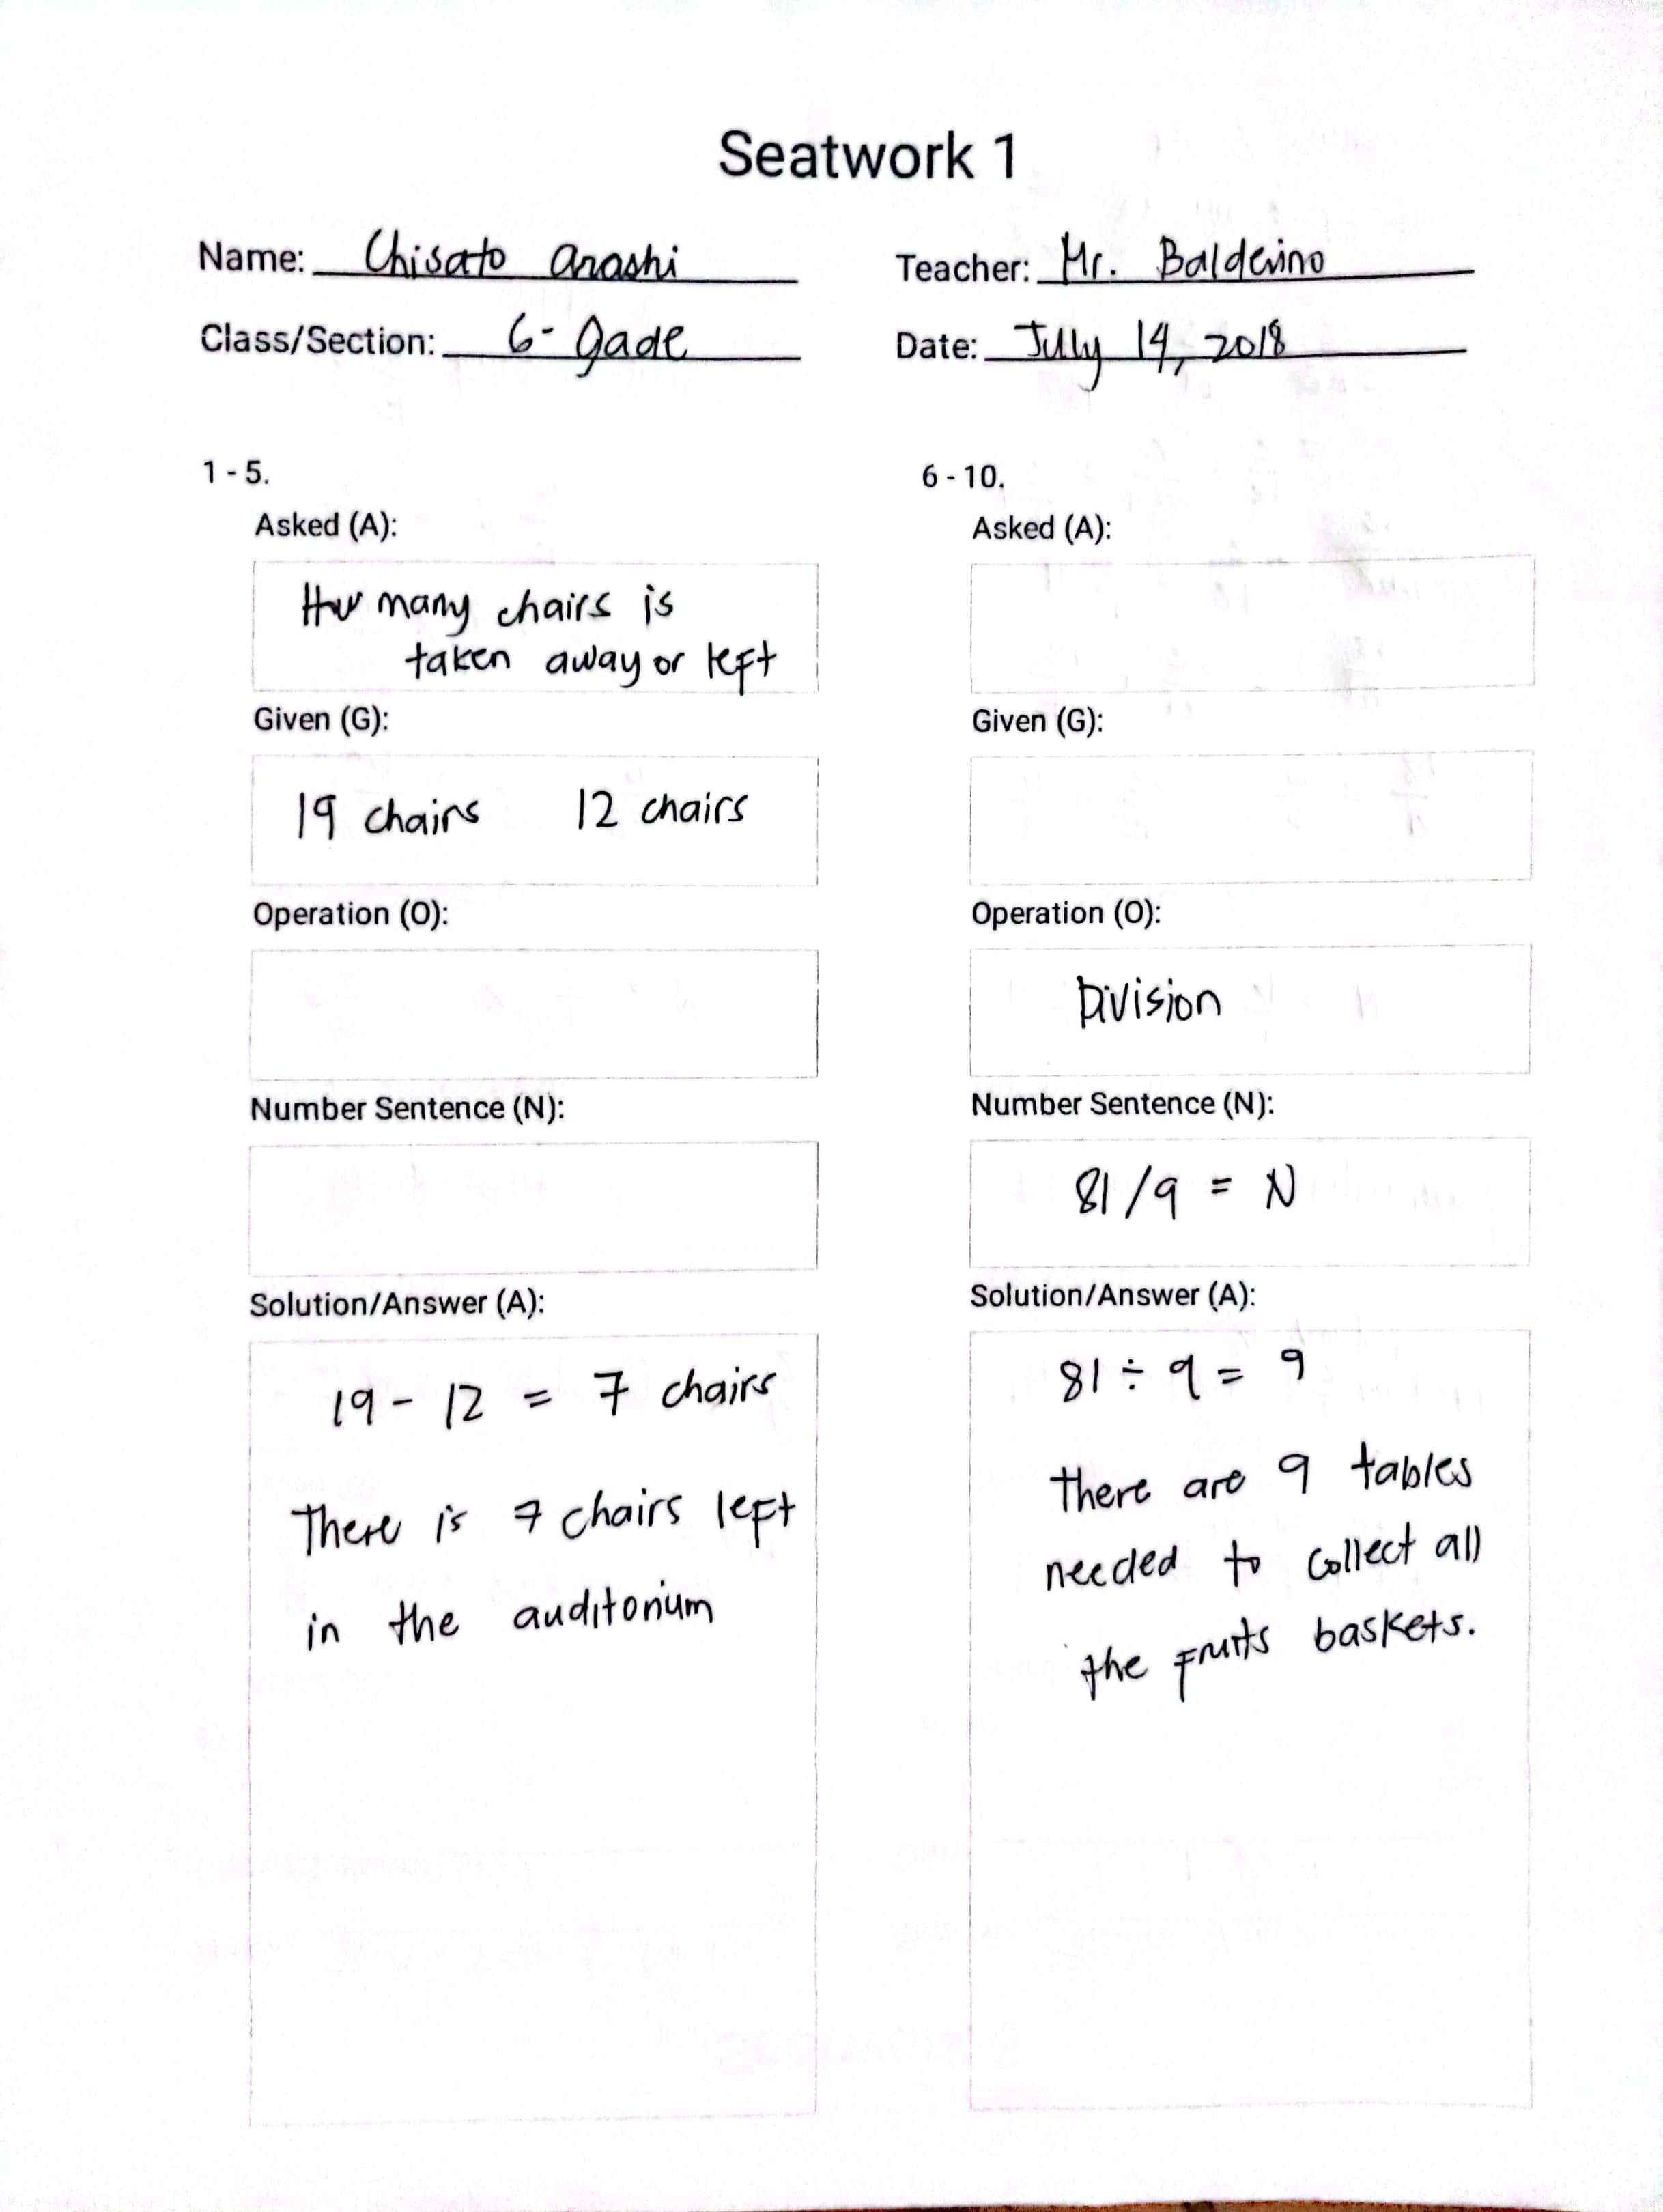 Seatwork 1
Name: Chisato Arashi
Teacher: Mr. Balderino
Class/Section: 6 - Jade
Date: July 14, 2018
1 - 5.
Asked (A):
How many chairs is
taken away or left
Given (G):
19 chairs 12 chairs
Operation (O):
Number Sentence (N):
Solution/Answer (A):
19 - 12 = 7 chairs
There is 7 chairs left
in the auditorium
6 - 10.
Asked (A):
Given (G):
Operation (O):
Division
Number Sentence (N):
81 / 9 = N
Solution/Answer (A):
81 ÷ 9 = 9
there are 9 tables
needed to collect all
the fruits baskets.